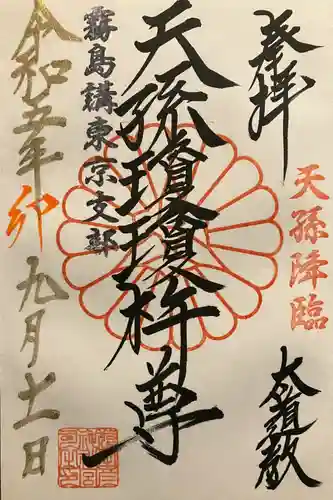 奉拝
天孫降臨
大道教
天孫瓊瓊杵尊
霧島講東京支部
令和五年卯九月十一日